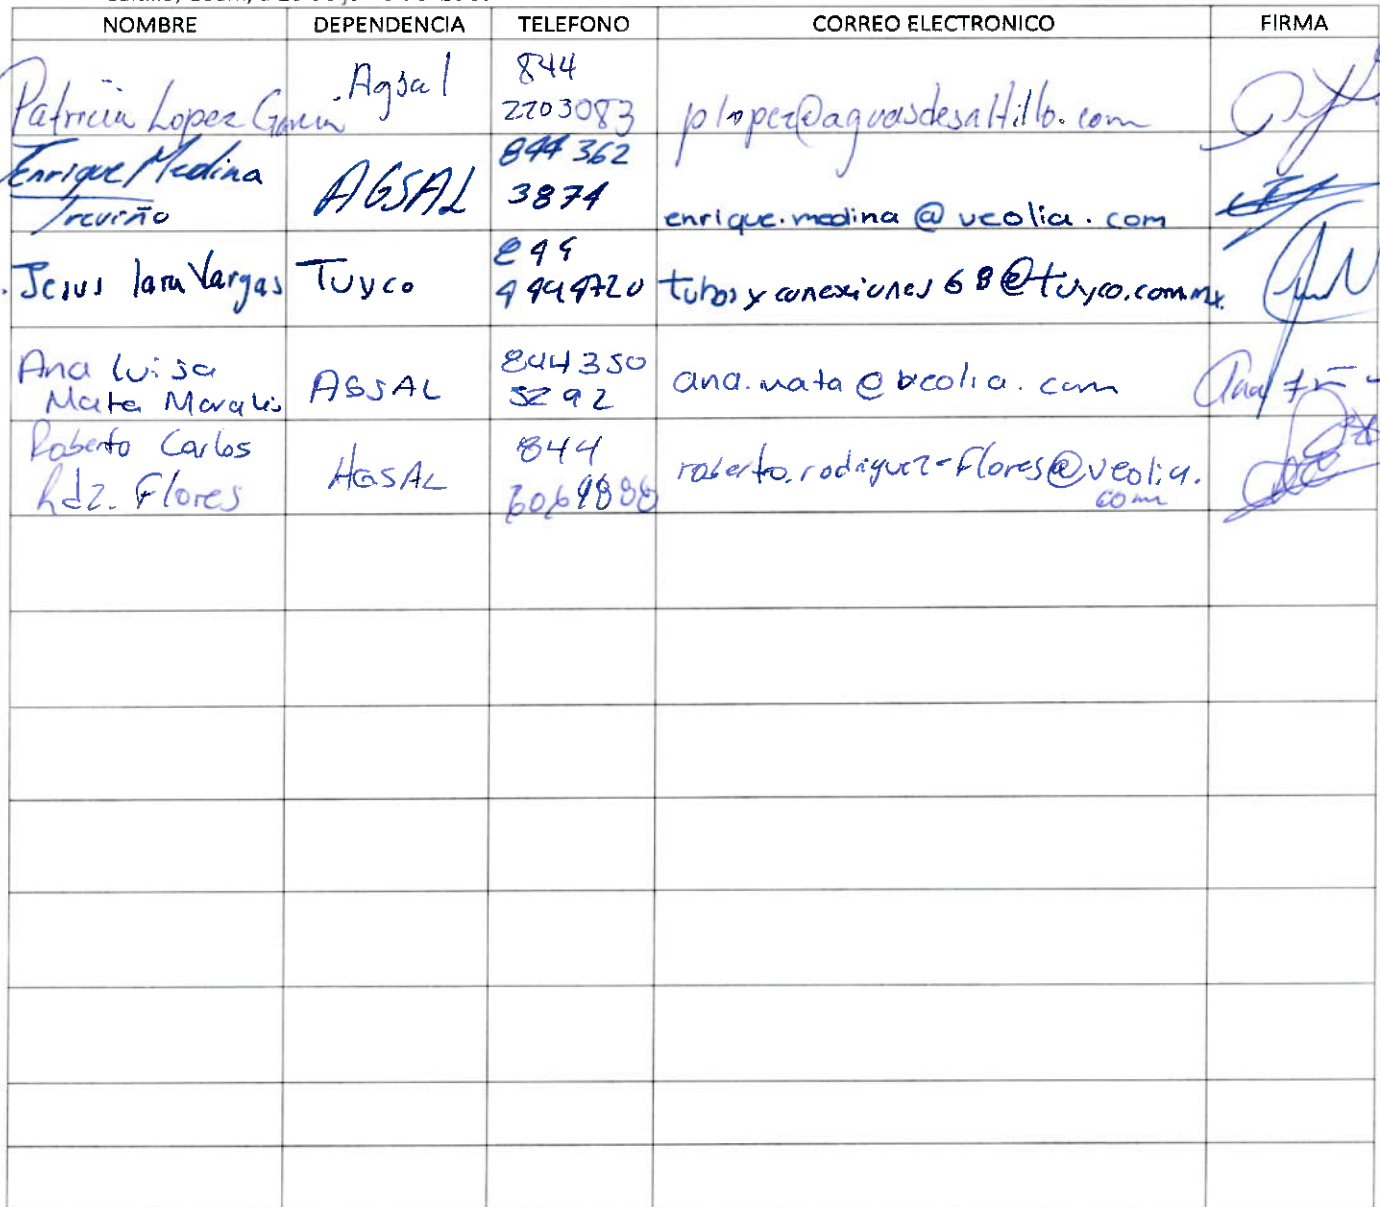 NOMBRE DEPENDENCIA TELEFONO CORREO ELECTRONICO FIRMA
Patricia Lopez Garcia Agsal 844 2203083 plopez@aguasdesaltillo.com
Enrique Medina Treviño AGSAL 844 362 3874 enrique.medina@veolia.com
Jesus Lara Vargas Tuyco 844 tubosyconexiones68@tuyco.com.mx.
Ana Luisa Mata Morales AGSAL 844350 5292 ana.mata@veolia.com
Roberto Carlos Rdz. Flores AGSAL 844 roberto.rodriguez-flores@veolia.com